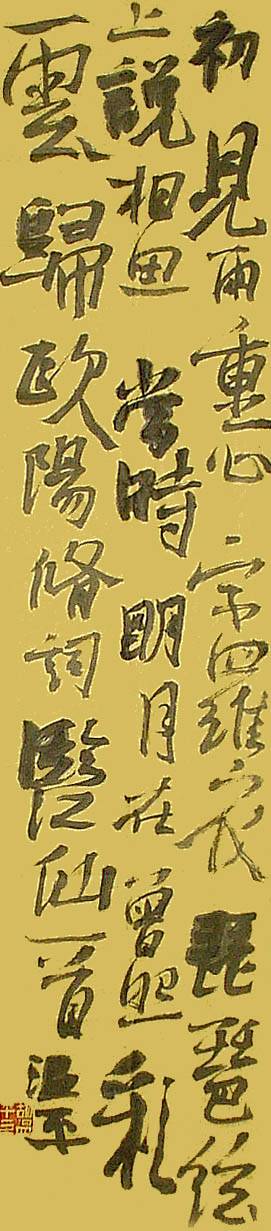 初見兩重心字羅衣琵琶絃
上說相思當時明月在曾照彩
雲歸歐陽修詞臨江仙一首